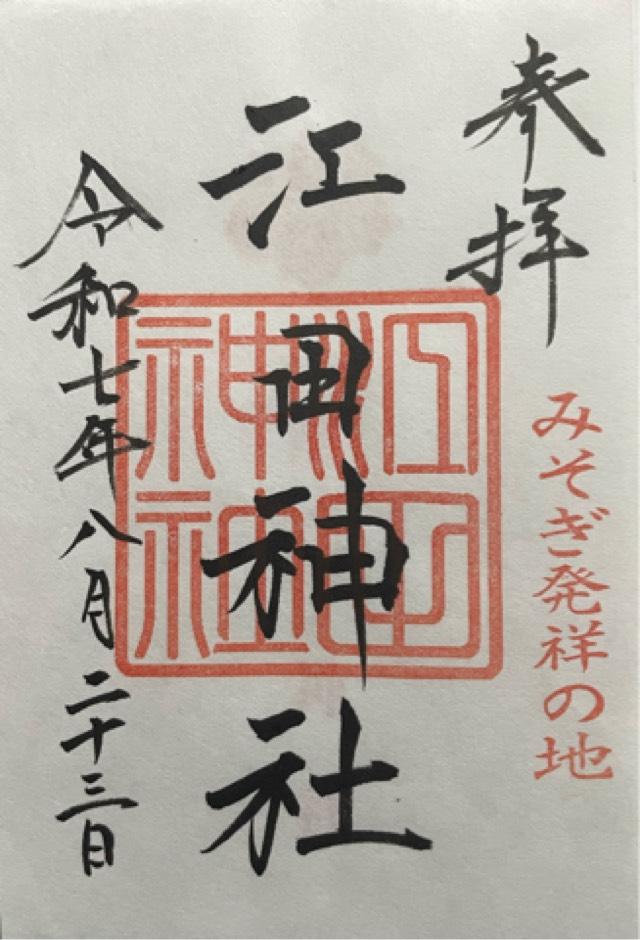 奉拝
みそぎ発祥の地
江田神社
江田神社
令和七年八月二十三日